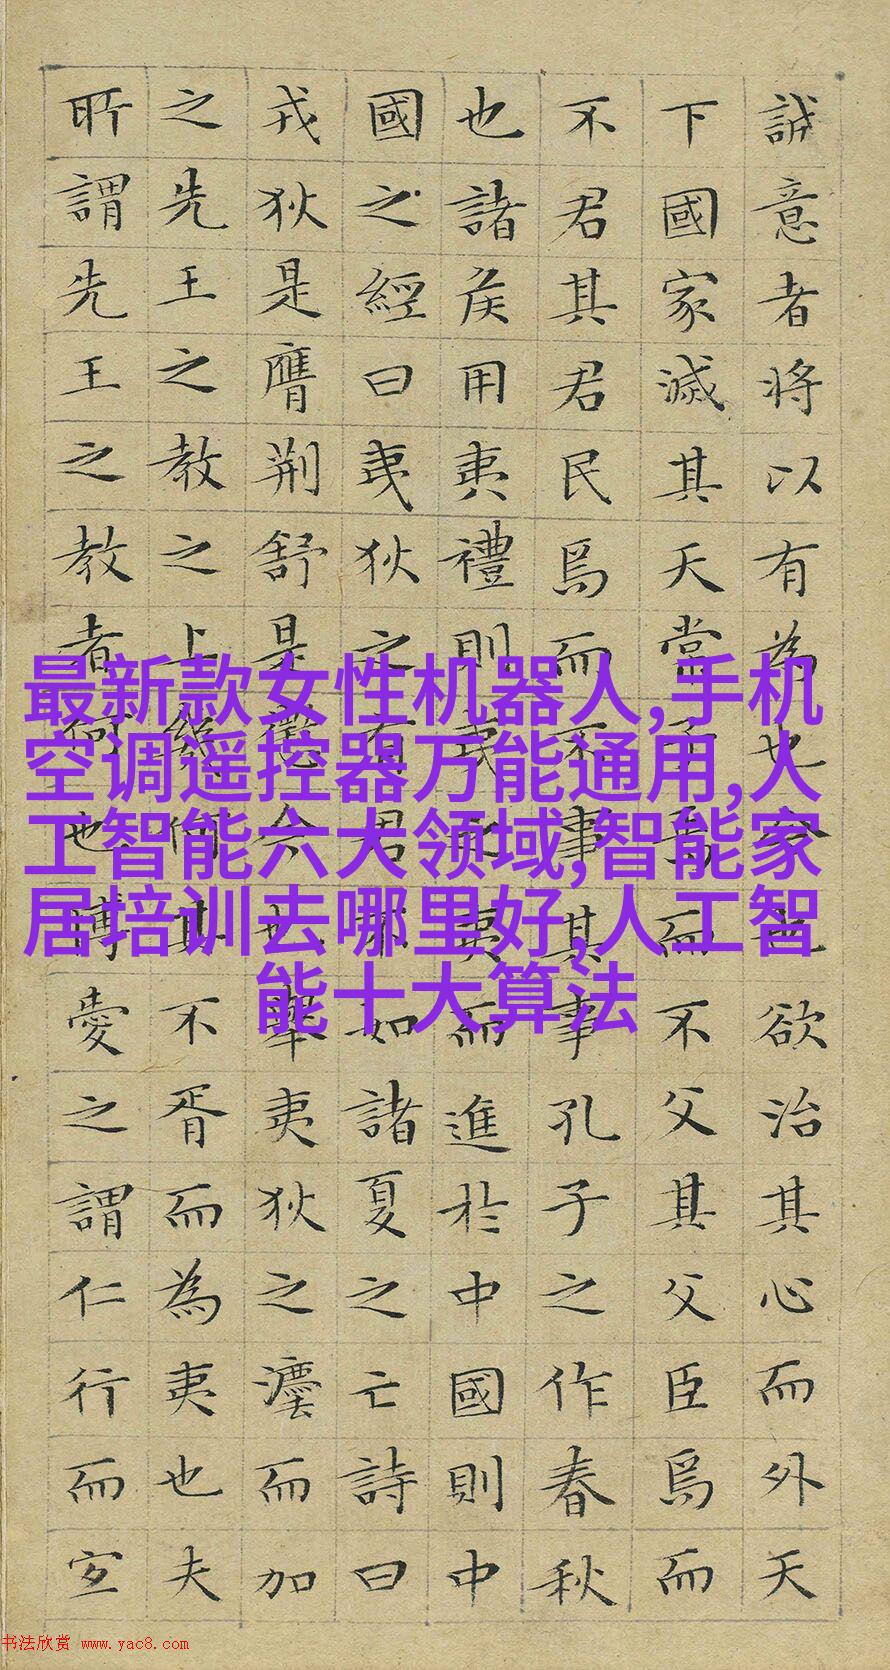 誠意者將以有為也今也欲治其心而外天
下國家滅其天常子焉而不父其父臣焉而
不君其君民焉而不事其事孔子之作春秋
也諸侯用夷禮則夷之夷而進於中國則中
國之經曰夷狄之有君不如諸夏之亡詩曰
戎狄是膺荆舒是懲今也舉夷狄之灋而加
之先王之教之上幾何其不胥而為夷也夫
所謂先王之教者何也博愛之謂仁行而宜
最新款女性机器人,手机
空调遥控器万能通用,人
工智能六大领域,智能家
居培训去哪里好,人工智
能十大算法
书法欣赏 www.yac8.com